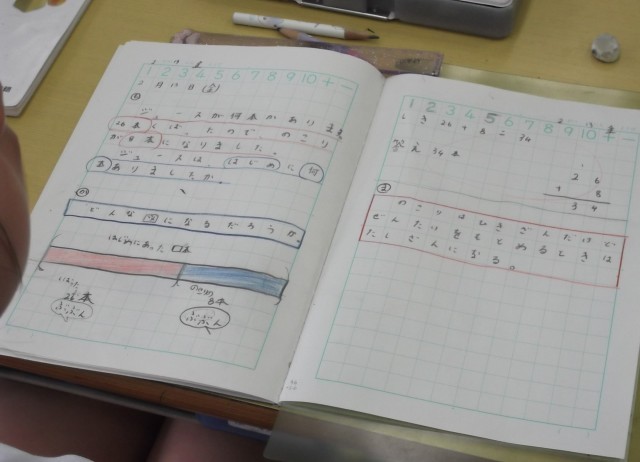 1 2 3 4 5 6 7 8 9 10 + −
2月15日(金)
も
ジュースが何本かあります
26本くばったので のこり
が8本になりました。
ジュースは、はじめに何
本ありましたか。
か
どんな図になるだろうか
はじめにあった□本
くばった
26本
ぶぶん
のこり
8本
ぶぶん
1 2 3 4 5 6 7 8 9 10 + −
しき 26+8=34
答え 34本
2 6
+ 8
3 4
ま
のこりはひきざんだけど
ぜんたいをもとめるときは
たしざんになる。